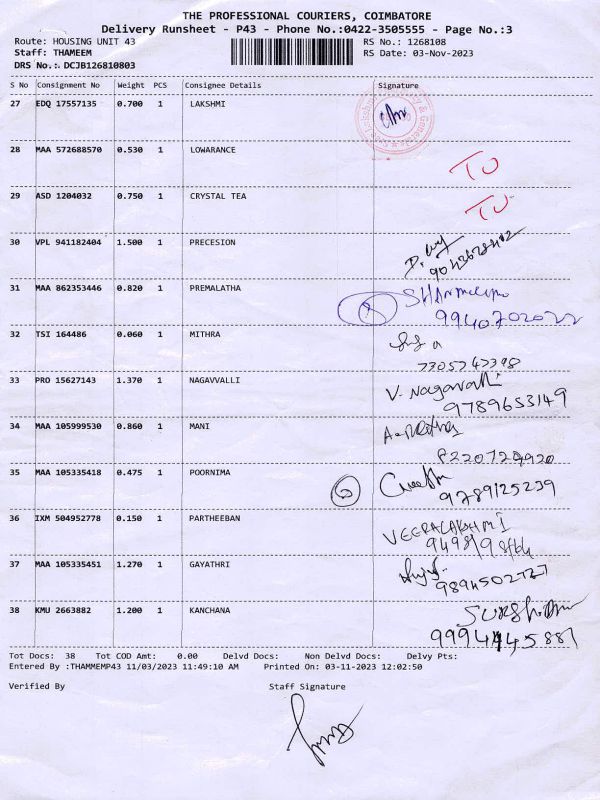 THE PROFESSIONAL COURIERS, COIMBATORE
Delivery Runsheet - P43 - Phone No.:0422-3505555 - Page No.:3
Route: HOUSING UNIT 43 RS No.: 1268108
Staff: THAMEEM RS Date: 03-Nov-2023
DRS No.: DCJB126810803
S No Consignment No Weight PCS Consignee Details Signature
27 EDQ 17557135 0.700 1 LAKSHMI
28 MAA 572688570 0.530 1 LOWARANCE
TO
29 ASD 1204032 0.750 1 CRYSTAL TEA
TO
30 VPL 941182404 1.500 1 PRECESION
31 MAA 862353446 0.820 1 PREMALATHA
9940702022
32 TSI 164486 0.060 1 MITHRA
33 PRO 15627143 1.370 1 NAGAVVALLI V. Nagavalli
9789653149
34 MAA 105999530 0.860 1 MANI
35 MAA 105335418 0.475 1 POORNIMA
9789125239
36 IXM 504952778 0.150 1 PARTHEEBAN VEERALAKHMI
37 MAA 105335451 1.270 1 GAYATHRI
9894502727
38 KMU 2663882 1.200 1 KANCHANA
Tot Docs: 38 Tot COD Amt: 0.00 Delvd Docs: Non Delvd Docs: Delvy Pts:
Entered By :THAMMEMP43 11/03/2023 11:49:10 AM Printed On: 03-11-2023 12:02:50
Verified By Staff Signature